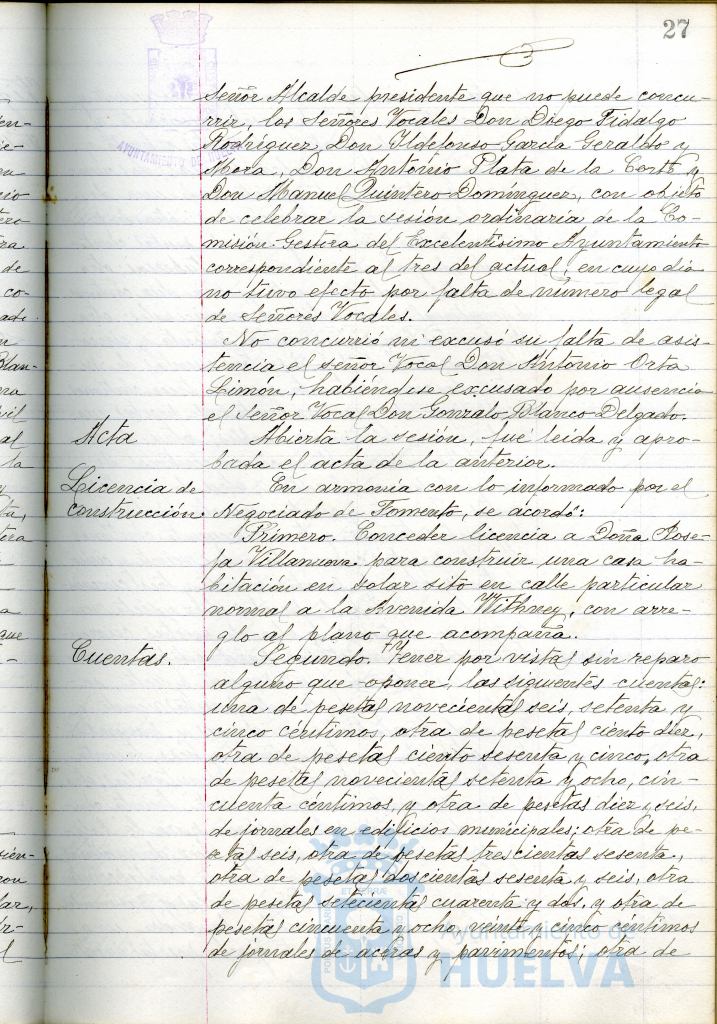 27
AYUNTAMIENTO DE HUELVA
Señor Alcalde presidente que no puede concu-
rrir, los Señores Vocales Don Diego Fidalgo
Rodríguez, Don Ildefonso García Geraldo y
Mora, Don Antonio Plata de la Corte y
Don Manuel Quintero Domínguez, con objeto
de celebrar la sesión ordinaria de la Co-
misión-Gestora del Excelentísimo Ayuntamiento
correspondiente al tres del actual, en cuyo día
no tuvo efecto por falta de número legal
de Señores Vocales.
No concurrió ni excusó su falta de asis-
tencia el señor Vocal Don Antonio Orta
Limón, habiéndose excusado por ausencia
el Señor Vocal Don Gonzalo Blanco Delgado.
Acta
Abierta la sesión, fué leida y apro-
bada el acta de la anterior.
Licencia de
construcción.
En armonía con lo informado por el
Negociado de Fomento, se acordó:
Primero. Conceder licencia a Doña Jose-
fa Villanueva para construir una casa ha-
bitación en solar sito en calle particular
normal a la Avenida Withney, con arre-
glo al plano que acompaña.
Cuentas.
Segundo. Tener por vistas sin reparo
alguno que oponer, las siguientes cuentas:
una de pesetas novecientas seis, setenta y
cinco céntimos, otra de pesetas ciento diez,
otra de pesetas ciento sesenta y cinco, otra
de pesetas novecientas setenta y ocho, cin-
cuenta céntimos, y otra de pesetas diez y seis,
de jornales en edificios municipales; otra de pe-
setas seis, otra de pesetas trescientas sesenta,
otra de pesetas doscientas sesenta y seis, otra
de pesetas setecientas cuarenta y dos, y otra de
pesetas cincuenta y ocho, veinte y cinco céntimos
de jornales de aceras y pavimentos; otra de
Ayuntamiento de
HUELVA